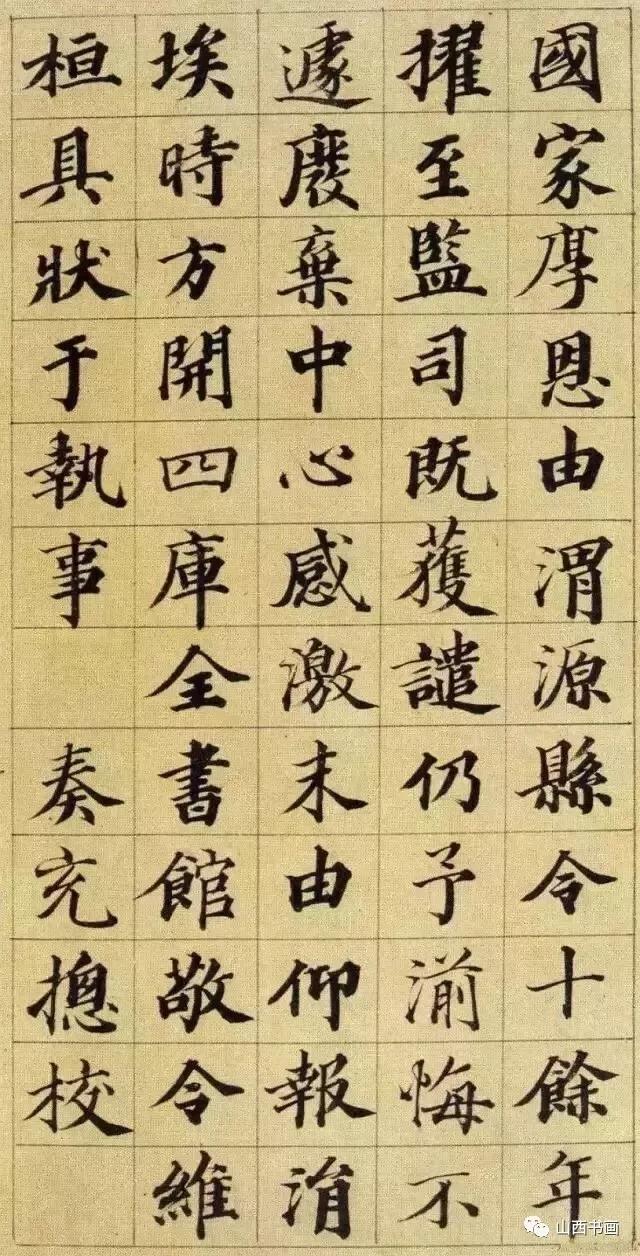 國家厚恩由渭源縣令十餘年
擢至監司既獲譴仍予湔悔不
遽廢棄中心感激末由仰報涓
埃時方開四庫全書館敬令維
桓具狀于執事
奏充摠校
山西书画